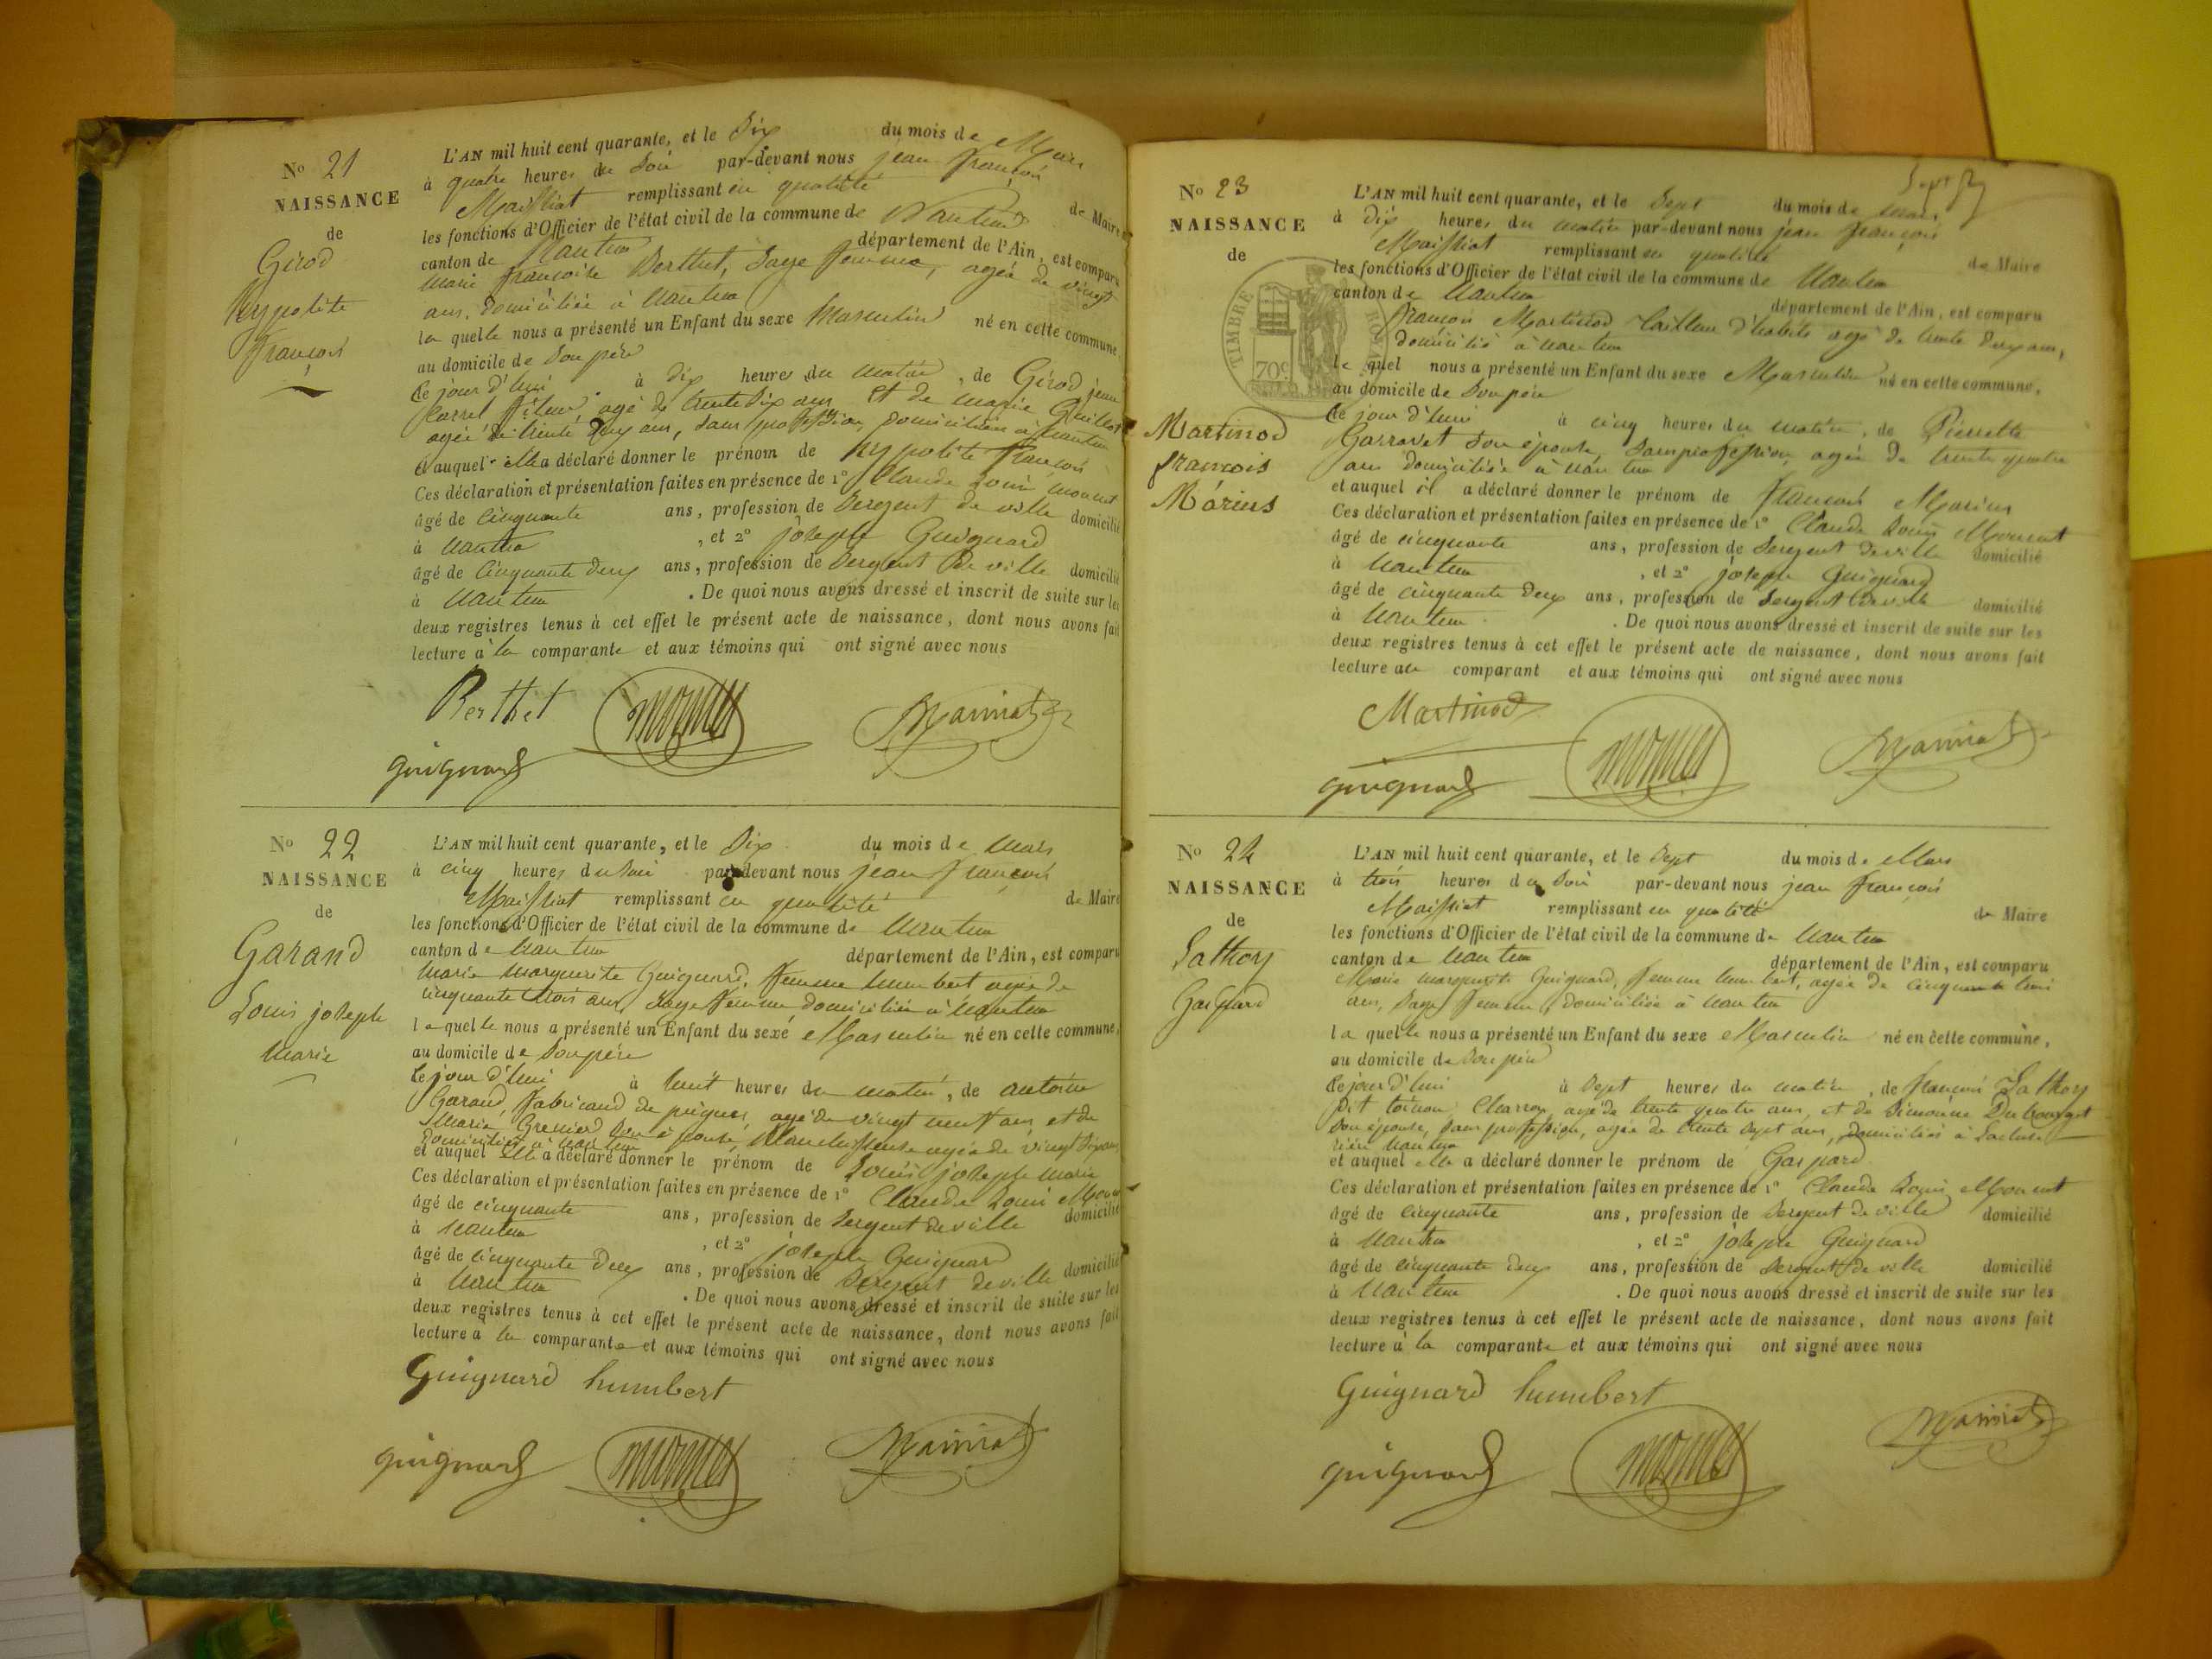 No 21
NAISSANCE
de
Girod
hypolite
françois
L'AN mil huit cent quarante, et le Six du mois de Mars
à quatre heures du Soir par-devant nous jean françois
Maissiat remplissant en qualité de Maire
les fonctions d'Officier de l'état civil de la commune de Nantua
canton de Nantua département de l'Ain, est comparu
Marie françoise Berthet, Sage femme, agée de vingt
ans, domiciliée à Nantua
la quelle nous a présenté un Enfant du sexe Masculin né en cette commune,
au domicile de Son père
Ce jour d'hui à dix heures du matin, de Girod jean
agé de trente Six ans et de marie
agée de trente deux ans, Sans profession, domiciliés à Nantua
et auquel elle a déclaré donner le prénom de hypolite françois
Ces déclaration et présentation faites en présence de 1° Claude Louis monnet
âgé de cinquante ans, profession de Sergent de ville domicilié
à Nantua, et 2° joseph Guignard
âgé de cinquante deux ans, profession de Sergent De ville domicilié
à Nantua. De quoi nous avons dressé et inscrit de suite sur les
deux registres tenus à cet effet le présent acte de naissance, dont nous avons fait
lecture à la comparante et aux témoins qui ont signé avec nous
Berthet monnet Maissiat
guignard
No 22
NAISSANCE
de
Garand
Louis joseph
Marie
L'AN mil huit cent quarante, et le Six du mois de Mars
à cinq heures du Soir par-devant nous jean françois
Maissiat remplissant en qualité de Maire
les fonctions d'Officier de l'état civil de la commune de Nantua
canton de Nantua département de l'Ain, est comparu
Marie Marguerite Guignard, femme humbert agée de
cinquante trois ans, Sage femme domiciliée à Nantua
la quelle nous a présenté un Enfant du sexe Masculin né en cette commune,
au domicile de Son père
Ce jour d'hui à huit heures du matin, de antoine
Garand, fabricand de peignes, agé de vingt neuf ans et de
Marie Grenier Son épouse, Blanchisseuse agée de vingt Six ans
domiciliés à Nantua
et auquel elle a déclaré donner le prénom de Louis joseph marie
Ces déclaration et présentation faites en présence de 1° Claude Louis Monnet
âgé de cinquante ans, profession de Sergent de ville domicilié
à Nantua, et 2° joseph Guignard
âgé de cinquante deux ans, profession de Sergent de ville domicilié
à Nantua. De quoi nous avons dressé et inscrit de suite sur les
deux registres tenus à cet effet le présent acte de naissance, dont nous avons fait
lecture à la comparante et aux témoins qui ont signé avec nous
Guignard humbert
guignard monnet Maissiat
Sept
No 23
NAISSANCE
de
TIMBRE ROYAL
70c
Martinod
françois
Márius
L'AN mil huit cent quarante, et le Sept du mois de Mars
à dix heures du matin par-devant nous jean françois
Maissiat remplissant en qualité de Maire
les fonctions d'Officier de l'état civil de la commune de Nantua
canton de Nantua département de l'Ain, est comparu
françois Martinod Tailleur d'habits agé de trente deux ans,
domicilié à Nantua
le quel nous a présenté un Enfant du sexe Masculin né en cette commune,
au domicile de Son père
Ce jour d'hui à cinq heures du matin, de Pierrette
Garravet Son épouse, Sans profession, agée de trente quatre
ans domiciliée à Nantua
et auquel il a déclaré donner le prénom de françois Marius
Ces déclaration et présentation faites en présence de 1° Claude Louis Monnet
âgé de cinquante ans, profession de Sergent de ville domicilié
à Nantua, et 2° joseph Guignard
âgé de cinquante deux ans, profession de Sergent de ville domicilié
à Nantua. De quoi nous avons dressé et inscrit de suite sur les
deux registres tenus à cet effet le présent acte de naissance, dont nous avons fait
lecture au comparant et aux témoins qui ont signé avec nous
Martinod
guignard monnet Maissiat
No 24
NAISSANCE
de
Lathoy
Gaspard
L'AN mil huit cent quarante, et le Sept du mois de Mars
à trois heures du Soir par-devant nous jean françois
Maissiat remplissant en qualité de Maire
les fonctions d'Officier de l'état civil de la commune de Nantua
canton de Nantua département de l'Ain, est comparu
Marie marguerite Guignard, femme humbert, agée de cinquante trois
ans, Sage femme, domiciliée à Nantua
la quelle nous a présenté un Enfant du sexe Masculin né en cette commune,
au domicile de Son père
Ce jour d'hui à Sept heures du matin, de françois Lathoy
dit Charron agé de trente quatre ans, et de Simonne Dubourget
Son épouse, Sans profession, agée de trente Sept ans, domiciliés à
Nantua
et auquel elle a déclaré donner le prénom de Gaspard
Ces déclaration et présentation faites en présence de 1° Claude Louis Monnet
âgé de cinquante ans, profession de Sergent de ville domicilié
à Nantua, et 2° joseph Guignard
âgé de cinquante deux ans, profession de Sergent de ville domicilié
à Nantua. De quoi nous avons dressé et inscrit de suite sur les
deux registres tenus à cet effet le présent acte de naissance, dont nous avons fait
lecture à la comparante et aux témoins qui ont signé avec nous
Guignard humbert
guignard monnet Maissiat